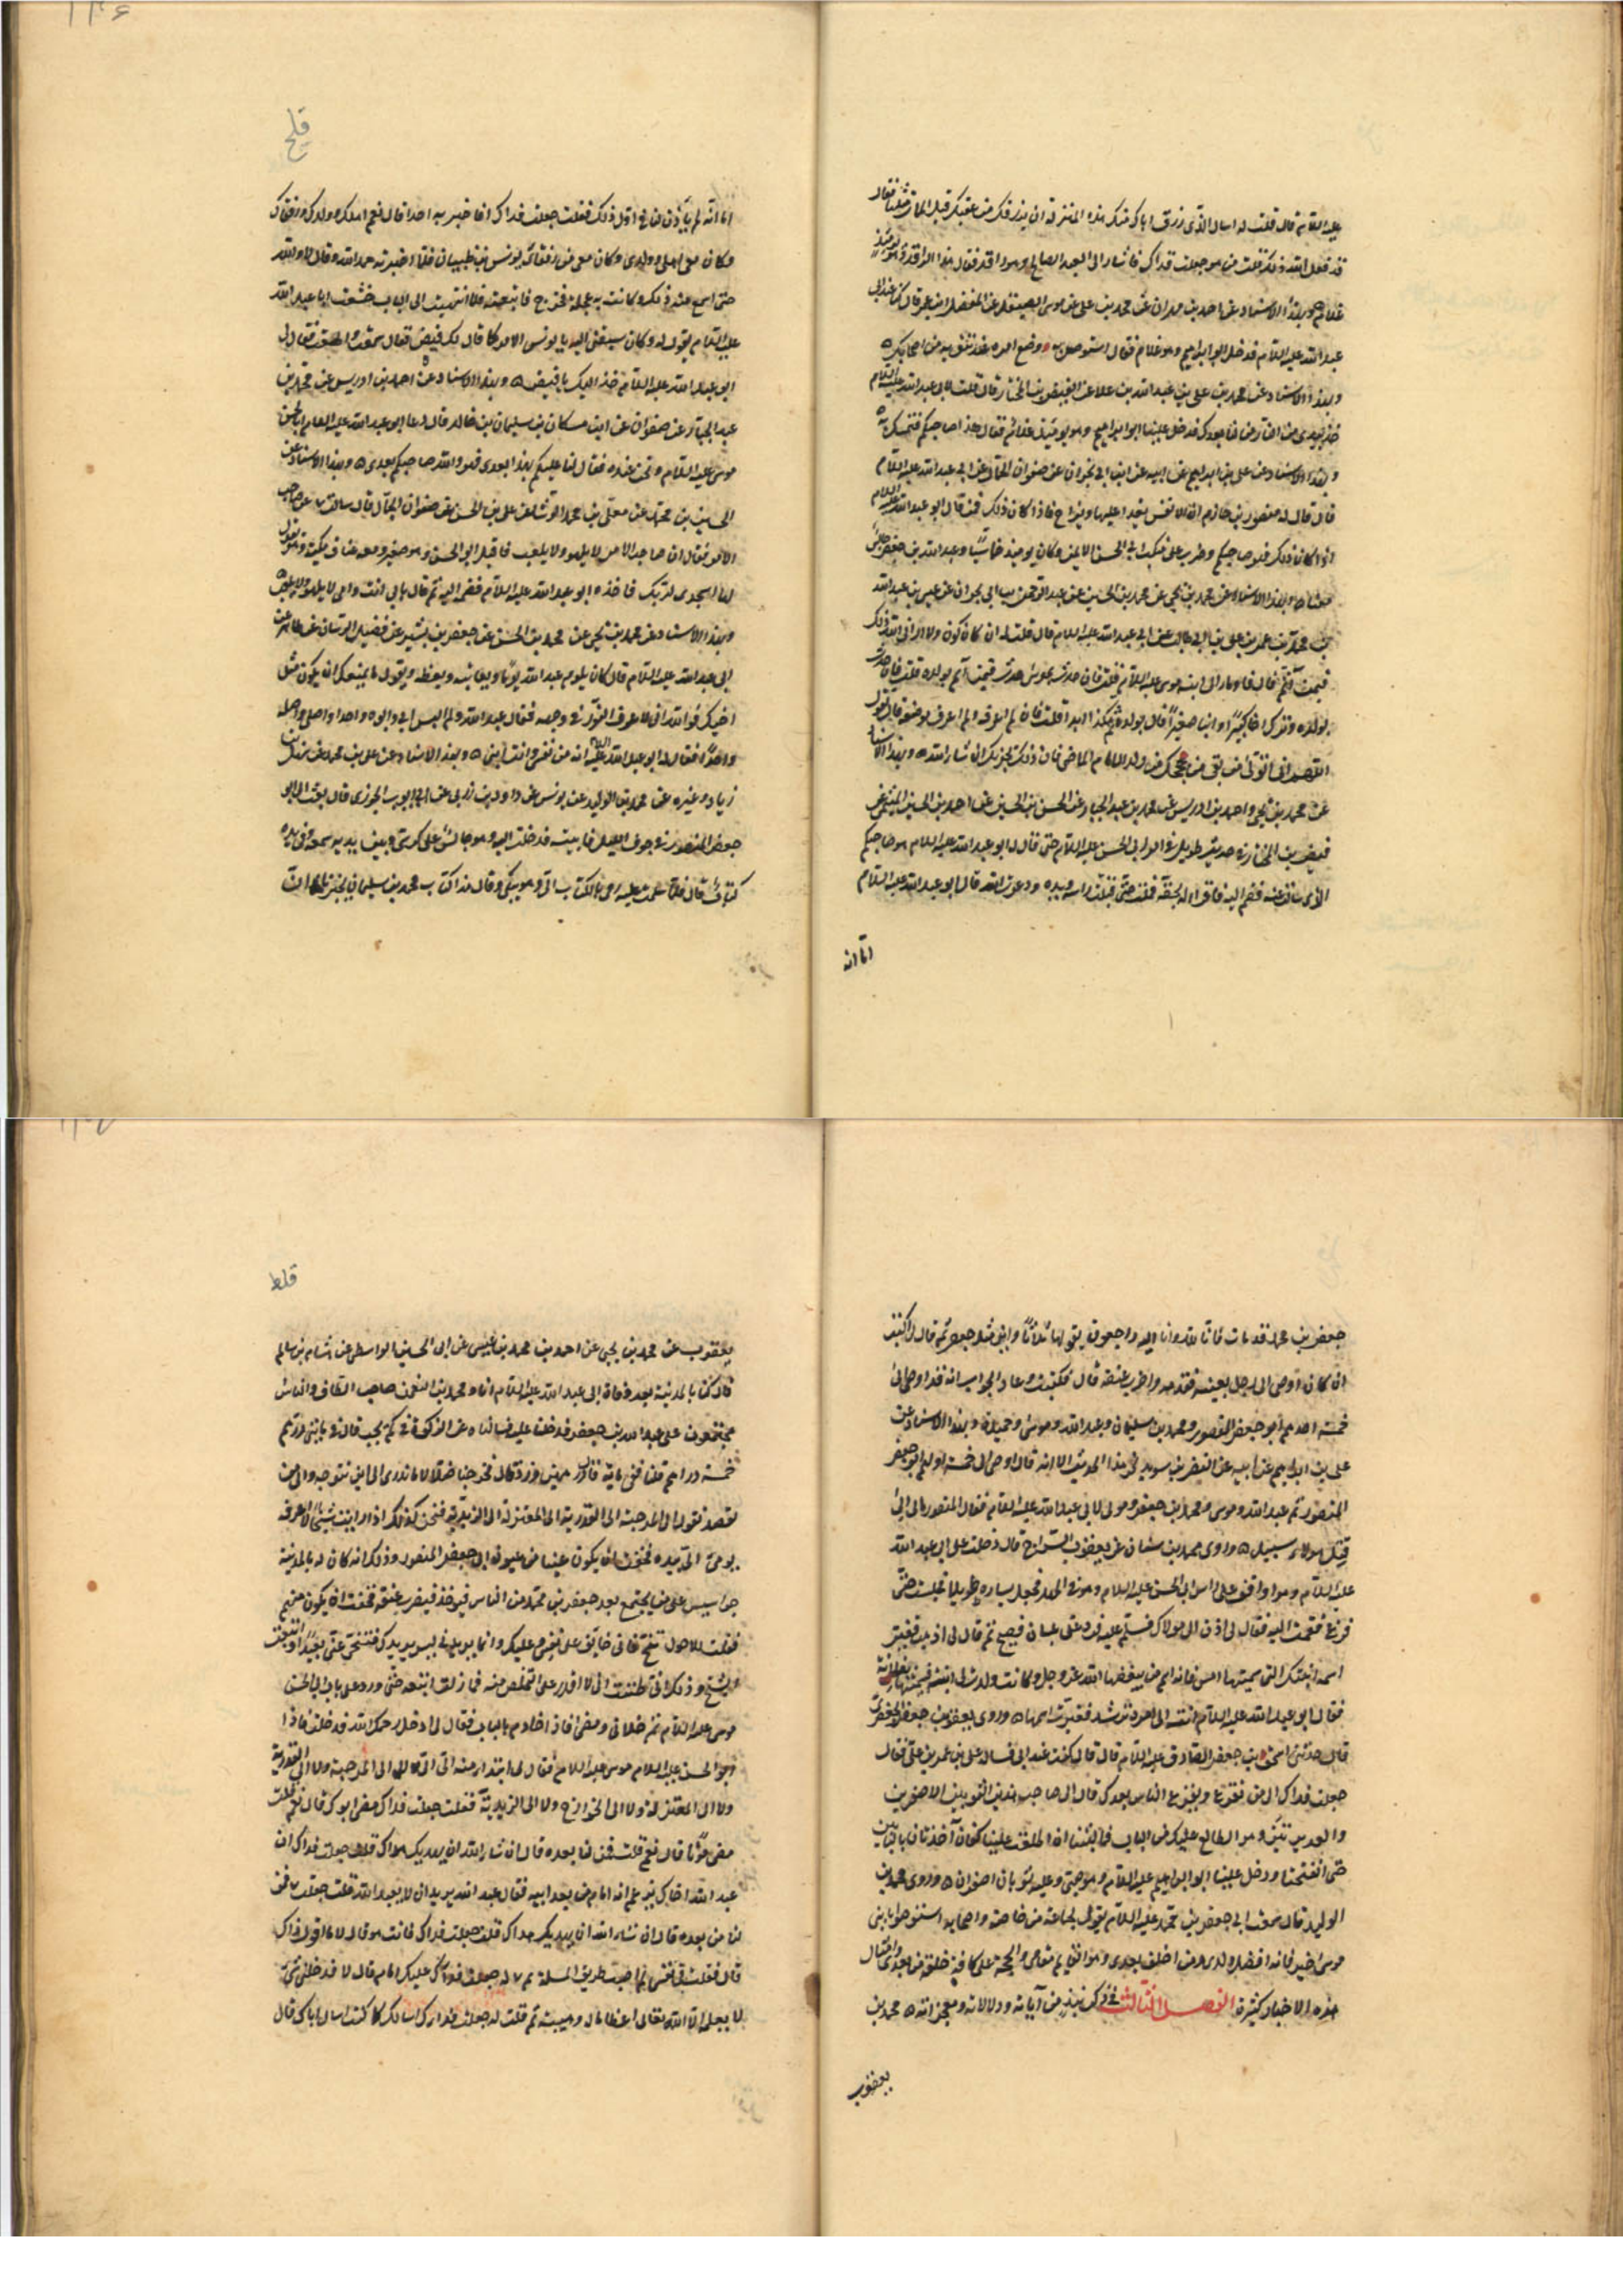 عليه السلام قال قلت له اسال الذي رزق اباك منك هذه المنزلة ان يرزقك من عقبك قبل الممات مثلها فقال
قد فعل الله ذلك قلت من هو جعلت فداك فاشار الى العبد الصالح وهو راقد فقال هذا الراقد وهو يومئذ
غلام وبهذا الاسناد عن احمد بن مهران عن محمد بن علي عن موسى الصيقل عن المفضل بن عمر قال كنت عند ابي
عبد الله عليه السلام فدخل ابو ابراهيم وهو غلام فقال استوص به وضع امره عند من تثق به من اصحابك
وبهذا الاسناد عن محمد بن علي عن عبد الله بن علا عن الفيض بن المختار قال قلت لابي عبد الله عليه السلام
خذ بيدي من النار من لنا بعدك فدخل علينا ابو ابراهيم وهو يومئذ غلام فقال هذا صاحبكم فتمسك به
وبهذا الاسناد عن علي بن ابراهيم عن ابيه عن ابن ابي نجران عن صفوان الجمال عن ابي عبد الله عليه السلام
قال قال له منصور بن حازم ان الانفس يغدا عليها ويراح فاذا كان ذلك فمن قال ابو عبد الله عليه السلام
اذا كان ذلك فهو صاحبكم وضرب على منكب ابي الحسن الايمن وكان يومئذ خماسيا وعبد الله بن جعفر جالس
معنا وبهذا الاسناد عن محمد بن يحيى عن محمد بن الحسين عن عبد الرحمن بن ابي نجران عن عيسى بن عبد الله
بن محمد بن عمر بن علي بن ابي طالب عن ابي عبد الله عليه السلام قال قلت له ان كان كون ولا اراني الله ذلك
فبمن آتم قال فاومأ الى ابنه موسى عليه السلام قلت فان حدث بموسى حدث فبمن آتم قال بولده قلت فان حدث
بولده وترك اخا كبيرا وابنا صغيرا قال بولده ثم هكذا ابدا قلت فان لم اعرفه ولم اعرف موضعه قال تقول
اللهم اني اتولى من بقي من حججك من ولد الامام الماضي فان ذلك يجزيك ان شاء الله وبهذا الاسناد
عن محمد بن يحيى واحمد بن ادريس عن محمد بن عبد الجبار عن الحسن بن الحسين عن احمد بن الحسن الميثمي عن
فيض بن المختار في حديث طويل في امر ابي الحسن عليه السلام حتى قال له ابو عبد الله عليه السلام هو صاحبكم
الذي سالت عنه فقم اليه فاقر له بحقه فقمت حتى قبلت راسه ويده ودعوت الله قال ابو عبد الله عليه السلام
اما انه
قلح
اما انه لم يأذن لنا في اول ذلك فقلت جعلت فداك افاخبر به احدا قال نعم اهلك وولدك ورفقاك
وكان معي اهلي وولدي وكان معي من رفقائي يونس بن ظبيان فلما اخبرته حمد الله وقال لا والله
حتى اسمع منه ذلك وكانت به عجلة فخرج فاتبعته فلما انتهيت الى الباب سمعت ابا عبد الله
عليه السلام يقول له وكان سبقني اليه يا يونس الامر كما قال لك فيض فقال سمعت واطعت فقال لي
ابو عبد الله عليه السلام خذه اليك يا فيض وبهذا الاسناد عن احمد بن ادريس عن محمد بن
عبد الجبار عن صفوان عن ابن مسكان عن سليمان بن خالد قال دعا ابو عبد الله عليه السلام ابا الحسن
موسى عليه السلام ونحن عنده فقال لنا عليكم بهذا بعدي فهو والله صاحبكم بعدي وبهذا الاسناد عن
الحسين بن محمد عن معلى بن محمد الوشا عن علي بن الحسن عن صفوان الجمال قال سالت عن صاحب
الامر فقال ان صاحب الامر لا يلهو ولا يلعب فاقبل ابو الحسن وهو صغير ومعه عناق مكية وهو يقول
لها اسجدي لربك فاخذه ابو عبد الله عليه السلام فضمه اليه ثم قال بابي انت وامي لا يلهو ولا يلعب
وبهذا الاسناد عن محمد بن يحيى عن محمد بن الحسن عن جعفر بن بشير عن فضيل الرسان عن طاهر عن
ابي عبد الله عليه السلام قال كان يلوم عبد الله يوما ويعاتبه ويعظه ويقول ما يمنعك ان يكون مثل
اخيك فوالله اني لاعرف النور في وجهه فقال عبد الله ولم اليس ابي وابوه واحدا واصلي واصله
واحدا فقال له ابو عبد الله عليه السلام انه من نفسي وانت ابني وبهذا الاسناد عن علي بن محمد عن سهل بن
زياد وغيره عن محمد بن الوليد عن يونس عن داود بن زربي عن ابي ايوب الجوزي قال بعث الي ابو
جعفر المنصور في جوف الليل فاتيته فدخلت اليه وهو جالس على كرسي وبين يديه شمعة وفي يده
كتاب قال فلما سلمت عليه رمى بالكتاب الي وهو يبكي وقال هذا كتاب محمد بن سليمان يخبرنا ان
جعفر بن محمد قد مات فانا لله وانا اليه راجعون يقولها ثلاثا واين مثل جعفر ثم قال لي اكتب
ان كان اوصى الى رجل بعينه فقدمه واضرب عنقه قال فكتبت وعاد الجواب انه قد اوصى الى
خمسة احدهم ابو جعفر المنصور ومحمد بن سليمان وعبد الله وموسى وحميدة وبهذا الاسناد عن
علي بن ابراهيم عن ابيه عن النضر بن سويد نحو هذا الحديث الا انه قال اوصى الى خمسة اولهم ابو جعفر
المنصور ثم عبد الله وموسى ومحمد بن جعفر ومولى لابي عبد الله عليه السلام فقال المنصور مالي الى
قتل هولاء سبيل وروى محمد بن سنان عن يعقوب السراج قال دخلت على ابي عبد الله
عليه السلام وهو واقف على راس ابي الحسن عليه السلام وهو في المهد فجعل يساره طويلا فجلست حتى
فرغ فقمت اليه فقال لي ادن الى مولاك فسلم عليه فرد علي بلسان فصيح ثم قال لي اذهب فغير
اسم ابنتك التي سميتها امس فانه اسم يبغضه الله عز وجل وكانت ولدت لي ابنة فسميتها
فقال ابو عبد الله عليه السلام انته الى امره ترشد فغيرت اسمها وروى يعقوب بن جعفر الجعفري
قال حدثني اسحق بن جعفر الصادق عليه السلام قال كنت عند ابي فساله علي بن عمر بن علي فقال
جعلت فداك الى من نفزع ويفزع الناس بعدك قال الى صاحب هذين الثوبين الاصفرين
والغديرتين وهو الطالع عليك من الباب فما لبثنا ان طلعت علينا كفان آخذتان بالبابين
حتى انفتحتا ودخل علينا ابو ابراهيم عليه السلام وهو صبي وعليه ثوبان اصفران وروى محمد بن
الوليد قال سمعت ابي جعفر بن محمد عليه السلام يقول لجماعة من خاصته واصحابه استوصوا بابني
موسى خيرا فانه افضل ولدي ومن اخلف بعدي وهو القايم مقامي والحجة على كافة خلقه من بعدي وامثال
هذه الاخبار كثيرة الفصل الثالث في ذكر نبذ من آياته ودلالاته ومعجزاته محمد بن
يعقوب
قلط
يعقوب عن محمد بن يحيى عن احمد بن محمد بن عيسى عن ابي الحسين الواسطي عن هشام بن سالم
قال كنا بالمدينة بعد وفاة ابي عبد الله عليه السلام انا ومحمد بن النعمن صاحب الطاق والناس
مجتمعون على عبد الله بن جعفر فدخلنا عليه فسالناه عن الزكوة في كم تجب قال في مايتي درهم
خمسة دراهم قلنا ففي ماية قال درهمين ونصف قال فخرجنا ضلالا ما ندري الى اين نتوجه والى من
نقصد نقول الى المرجئة الى القدرية الى المعتزلة الى الزيدية فنحن كذلك اذ رايت شيخا لا اعرفه
يومئ الي بيده فخفت ان يكون عينا من عيون ابي جعفر المنصور وذلك انه كان له بالمدينة
جواسيس على من يجتمع بعد جعفر بن محمد من الناس فيوخذ فيضرب عنقه فخفت ان يكون منهم
فقلت للاحول تنح فاني خايف على نفسي وعليك وانما يريدني ليس يريدك فتنحى عني بعيدا واتبعت
الشيخ وذلك اني ظننت اني لا اقدر على التخلص منه فما زلت اتبعه حتى ورد على باب ابي الحسن
موسى عليه السلام ثم خلاني ومضى فاذا خادم بالباب فقال لي ادخل رحمك الله فدخلت فاذا
ابو الحسن موسى عليه السلام فقال لي ابتداء منه الي الي لا الى المرجئة ولا الى القدرية
ولا الى المعتزلة ولا الى الخوارج ولا الى الزيدية فقلت جعلت فداك مضى ابوك قال نعم قلت
مضى موتا قال نعم قلت فمن لنا بعده قال ان شاء الله ان يهديك هداك قلت جعلت فداك ان
عبد الله اخاك يزعم انه امام من بعد ابيه فقال عبد الله يريد ان لا يعبد الله قلت جعلت فداك فمن
لنا من بعده قال ان شاء الله ان يهديك هداك قلت جعلت فداك فانت هو قال لا ما اقول ذلك
قال فقلت في نفسي لم اصب طريق المسئلة ثم قلت له جعلت فداك عليك امام قال لا فدخلني شيء
لا يعلمه الا الله تعالى اعظاما له وهيبة ثم قلت له جعلت فداك اسالك كما كنت اسال اباك قال